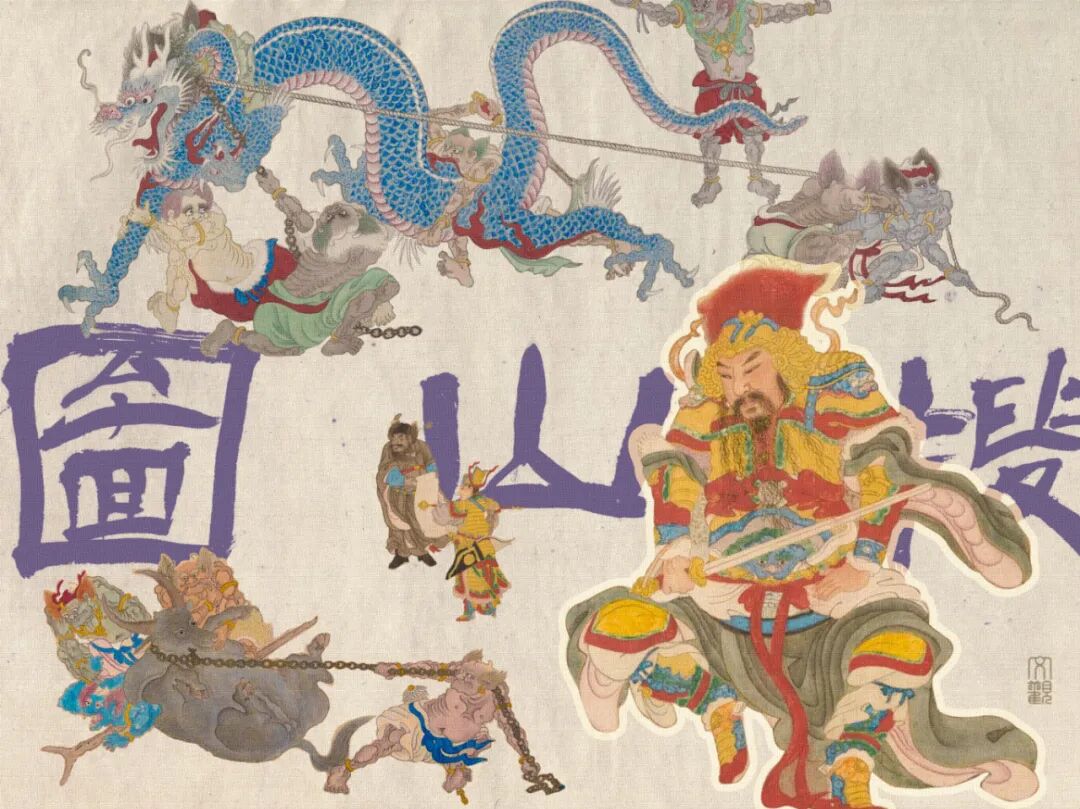 搜山圖